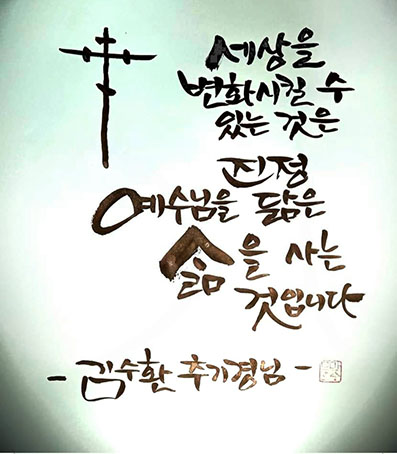 세상을
변화시킬 수
있는 것은
진정
예수님을 닮은
삶을 사는
것입니다
- 김수환 추기경님 -